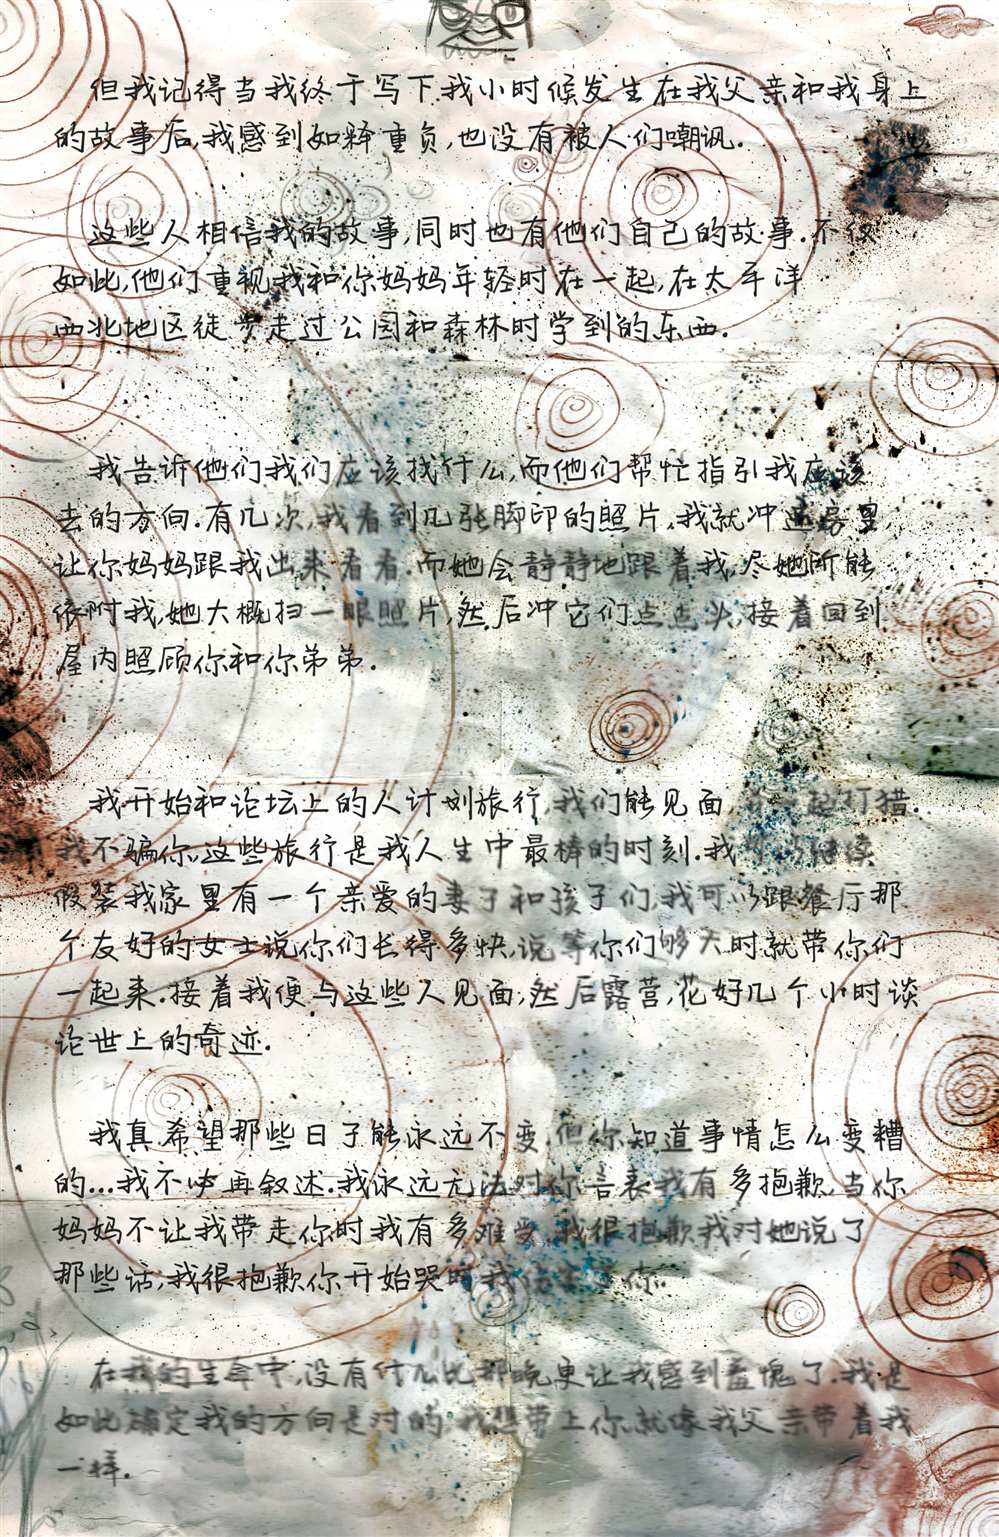 但我记得当我终于写下我小时候发生在我父亲和我身上
的故事后,我感到如释重负,也没有被人们嘲讽.
这些人相信我的故事,同时也有他们自己的故事.不仅
如此,他们重视我和你妈妈年轻时在一起,在太平洋
西北地区徒步走过公园和森林时学到的东西.
我告诉他们我们应该找什么,而他们帮忙指引我应该
去的方向.有几次,我看到几张脚印的照片,我就冲进房里,
让你妈妈跟我出来看看.而她会静静地跟着我,尽她所能
依附我,她大概扫一眼照片,然后冲它们点点头,接着回到
屋内照顾你和你弟弟.
我开始和论坛上的人计划旅行,我们能见面,一起打猎.
我不骗你,这些旅行是我人生中最棒的时刻.我继续
假装我家里有一个亲爱的妻子和孩子们,我可以跟餐厅那
个友好的女士说你们长得多快,说等你们够大时就带你们
一起来.接着我便与这些人见面,然后露营,花好几个小时谈
论世上的奇迹.
我真希望那些日子能永远不变.但你知道事情怎么变糟
的...我不必再叙述.我永远无法对你言表我有多抱歉,当你
妈妈不让我带走你时我有多难受,我很抱歉我对她说了
那些话,我很抱歉你开始哭时我你.
在我的生命中,没有什么比那晚更让我感到羞愧了.我是
如此确定我的方向是对的,我想带上你,就像我父亲带着我
一样.